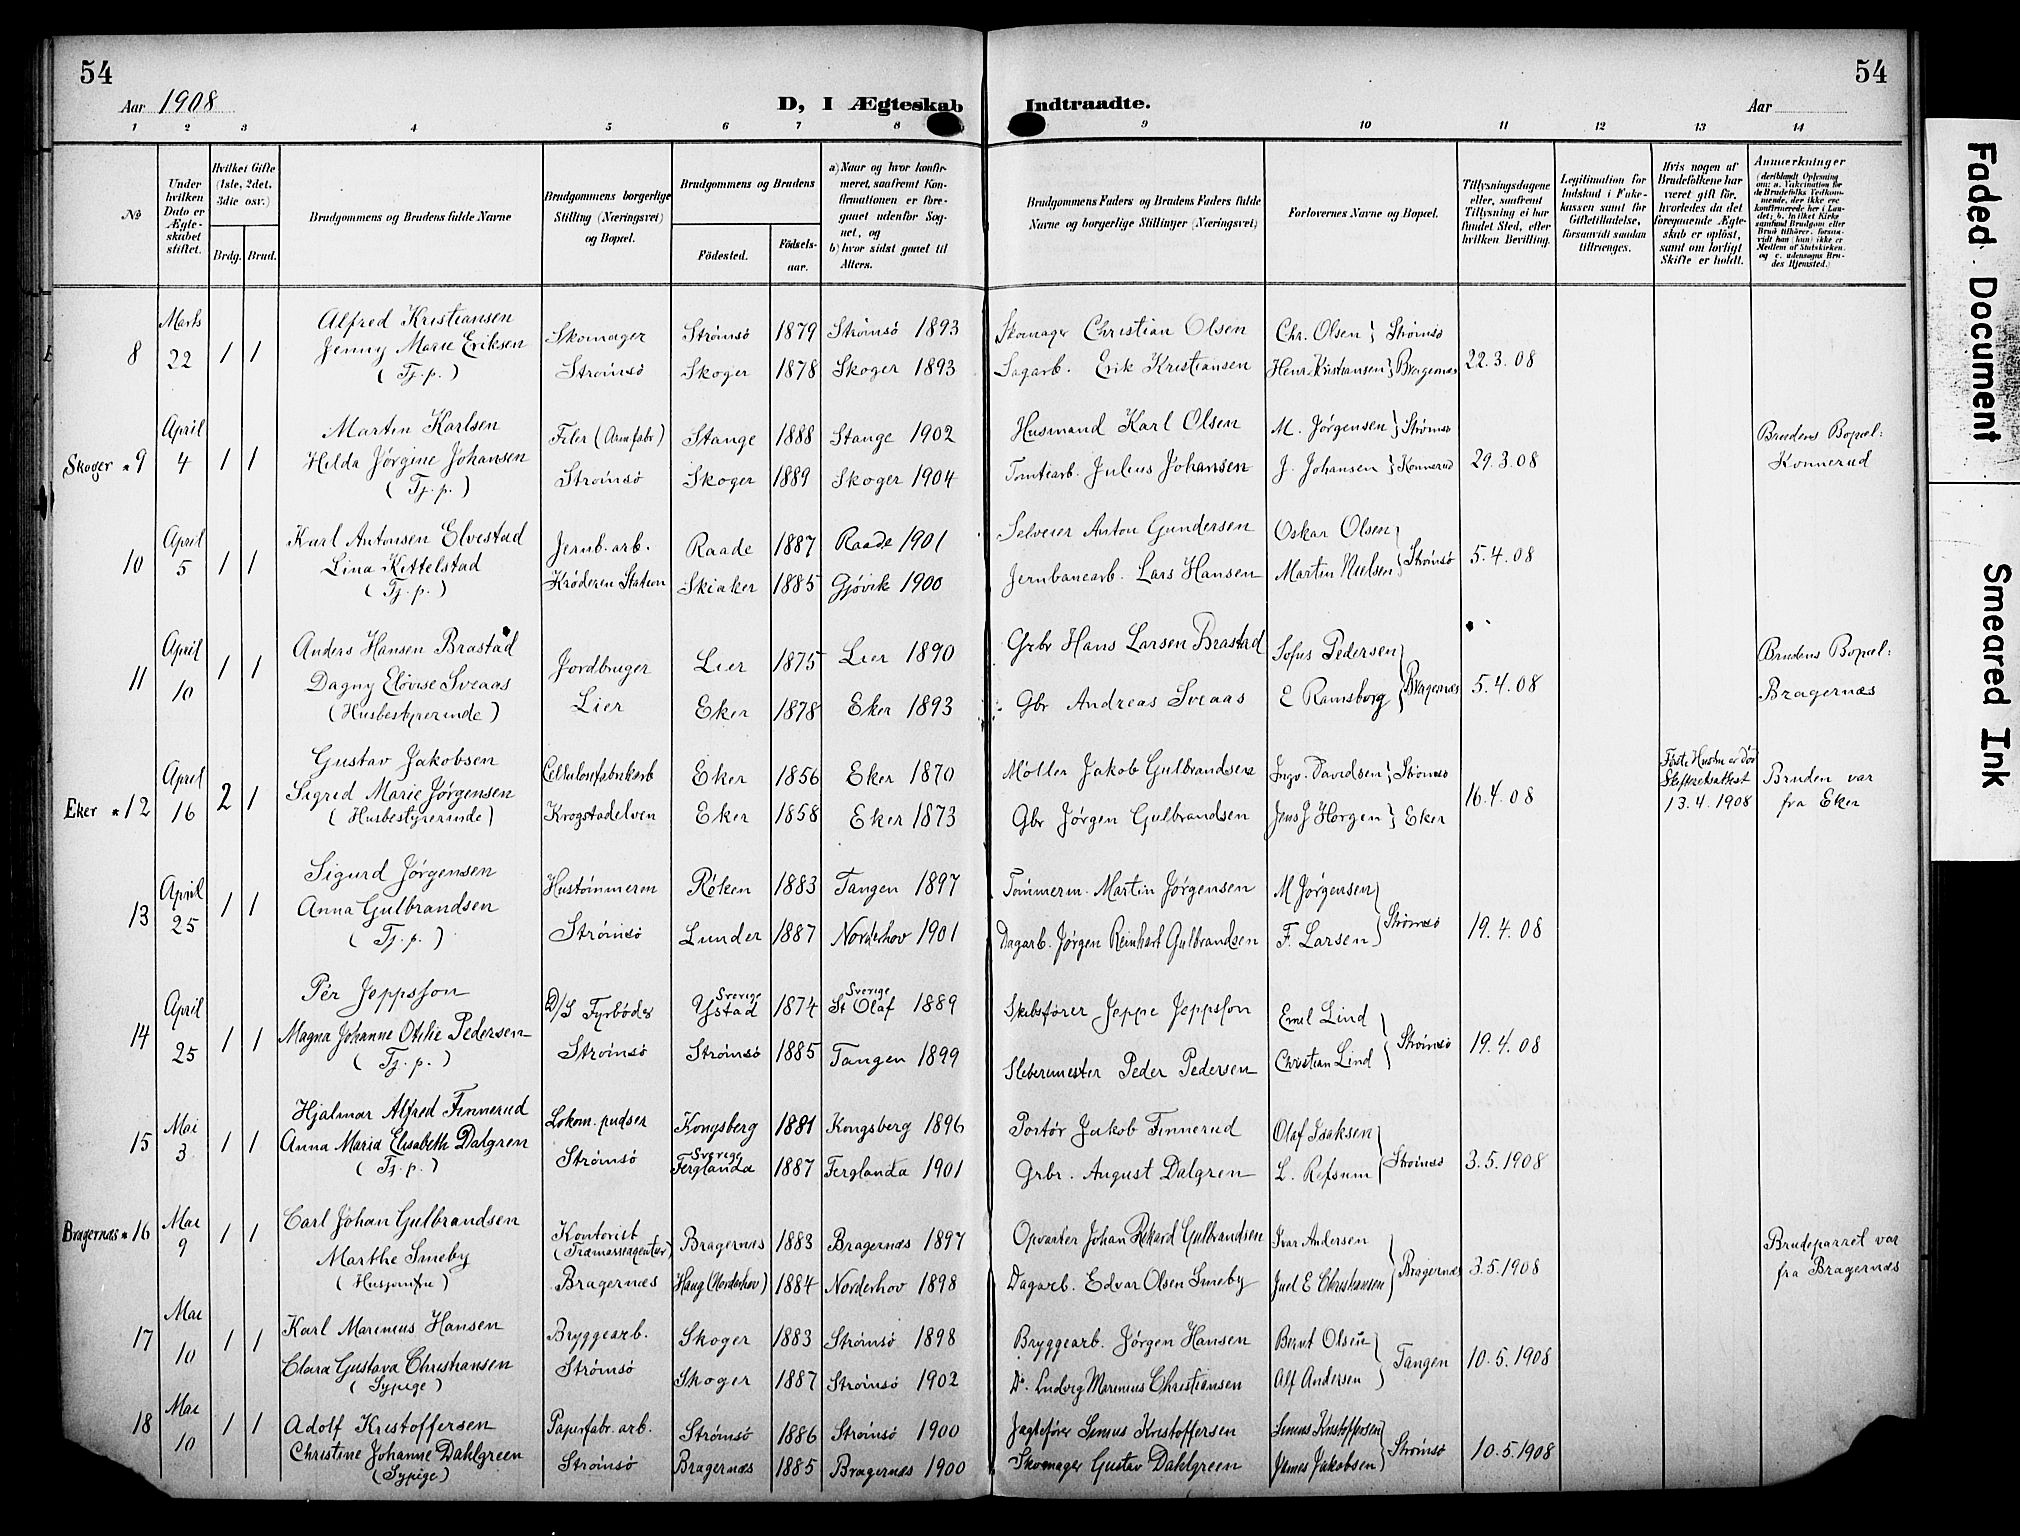 54
Aar 1908
D, I Ægteskab Indtraadte.
Aar
54
1 2 3 4 5 6 7 8 9 10 11 12 13 14
No
Under hvilken Dato er Ægteskabet stiftet.
Hvilket Gifte (1ste, 2det, 3die osv.)
Brdg. Brud.
Brudgommens og Brudens fulde Navne
Brudgommens borgerlige Stilling (Næringsvei) og Bopæl.
Brudgommens og Brudens
Födested.
Födselsaar.
a) Naar og hvor konfirmeret, saafremt Konfirmationen er foregaaet udenfor Sognet, og
b) hvor sidst gaaet til Alters.
Brudgommens Faders og Brudens Faders fulde Navne og borgerlige Stillinger (Næringsvei)
Forlovernes Navne og Bopæl.
Tillysningsdagene eller, saafremt Tillysning ei har fundet Sted, efter hvilken Bevilling.
Legitimation for Indskud i Enkekassen samt for Giftetilladelse, forsaavidt saadan tiltrænges.
Hvis nogen af Brudefolkene har været gift før, hvorledes da det foregaaende Ægteskab er opløst, samt om lovligt Skifte er holdt.
Anmærkninger
(deriblandt Oplysning om: a. Vakcination for de Brudefolks Vedkommende, der ikke ere konfirmerede her i Landet; b. hvilket Kirkesamfund Brudgom eller Brud tilhörer, forsaavidt han (hun) ikke er Medlem af Statskirken, og c. udensogns Brudes Hjemsted.)
8 Marts 22 1 1 Alfred Kristiansen Skomager Strømsö 1879 Strømsö 1893 Skomager Christian Olsen Chr. Olsen } Strømsö 22.3.08
Jenny Marie Eriksen (Tj.p.) Strømsö Skoger 1878 Skoger 1893 Sagarb. Erik Kristiansen Henr. Kristiansen } Bragernæs
Skoger * 9 April 4 1 1 Martin Karlsen Filer (Armfabr) Stange 1888 Stange 1902 Husmand Karl Olsen M. Jørgensen } Strømsö 29.3.08 Brudens Bopæl: Konnerud
Hilda Jørgine Johansen (Tj.p.) Strømsö Skoger 1889 Skoger 1904 Tomtearb. Julius Johansen J. Johansen } Konnerud
10 April 5 1 1 Karl Antonsen Elvestad Jernb. arb. Raade 1887 Raade 1901 Selveier Anton Gundersen Oskar Olsen } Strømsö 5.4.08
Lina Kittelstad (Tj.p.) Krøderen Station Skiaker 1885 Gjøvik 1900 Jernbanearb. Lars Hansen Martin Nielsen
11 April 10 1 1 Anders Hansen Brastad Jordbruger Lier 1875 Lier 1890 Grbr Hans Larsen Brastad Sofus Pedersen } Bragernæs 5.4.08 Brudens Bopæl: Bragernæs
Dagny Elovise Sveaas (Husbestyrerinde) Lier Eker 1878 Eker 1893 Gbr Andreas Sveaas E Ramsborg
Eker * 12 April 16 2 1 Gustav Jakobsen Cellulosefabrikarb Eker 1856 Eker 1870 Møller Jakob Gulbrandsen Ingv. Davidsen } Strømsö 16.4.08 Første Hustru er död Skifteretsattest 13.4.1908 Bruden var fra Eker
Sigrid Marie Jørgensen (Husbestyrerinde) Krogstadelven Eker 1858 Eker 1873 Gbr Jørgen Gulbrandsen Jens J Horgen } Eker
13 April 25 1 1 Sigurd Jørgensen Hustømmeren Røken 1883 Tangen 1897 Tømmerm. Martin Jørgensen M Jørgensen } Strømsö 19.4.08
Anna Gulbrandsen (Tj.p.) Strømsö Lunder 1887 Norderhov 1901 Dagarb. Jørgen Reinhart Gulbrandsen F. Larsen
14 April 25 1 1 Per Jeppsson D/S Fyrböder Ystad Sverige 1874 St Olaf Sverige 1889 Skibsfører Jeppe Jeppsson Emil Lind } Strømsö 19.4.08
Magna Johanne Otilie Pedersen (Tj.p.) Strømsö Strømsö 1885 Tangen 1899 Sliberimester Peder Pedersen Christian Lind
15 Mai 3 1 1 Hjalmar Alfred Finnerud Lokom. pudser Kongsberg 1881 Kongsberg 1896 Portør Jakob Finnerud Olaf Isaksen } Strømsö 3.5.1908
Anna Maria Elisabeth Dalgren (Tj.p.) Strømsö Sverige Ferglanda 1887 Ferglanda 1901 Grbr. August Dalgren L. Refsum
Bragernæs * 16 Mai 9 1 1 Carl Johan Gulbrandsen Kontorist (Træmasseagentur) Bragernæs 1883 Bragernæs 1897 Opvarter Johan Rikard Gulbrandsen Ivar Andersen } Bragernæs 3.5.1908 Brudeparret var fra Bragernæs
Marthe Smeby (Husjomfru) Bragernæs Haug (Norderhov) 1884 Norderhov 1898 Dagarb. Edvar Olsen Smeby Juel E Christiansen
17 Mai 10 1 1 Karl Marinius Hansen Bryggearb. Skoger 1883 Strømsö 1898 Bryggearb. Jørgen Hansen Bernt Olsen } Tangen 10.5.1908
Clara Gustava Christiansen (Sypige) Strømsö Skoger 1887 Strømsö 1902 Do. Ludvig Marinius Christiansen Alf Andersen
18 Mai 10 1 1 Adolf Kristoffersen Papirfabr. arb. Strømsö 1886 Strømsö 1900 Jagtefører Simus Kristoffersen Simus Kristoffersen } Strømsö 10.5.1908
Christine Johanne Dahlgreen (Sypige) Strømsö Bragernæs 1885 Bragernæs 1900 Skomager Gustav Dahlgreen James Jakobsen
Faded Document
Smeared Ink